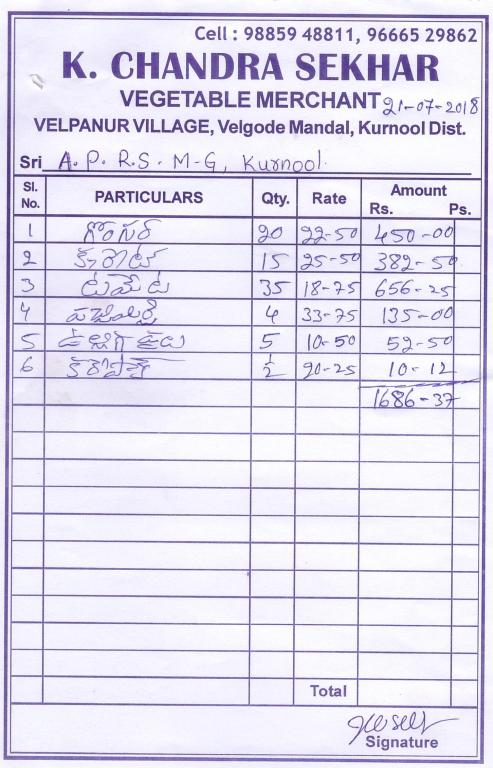 Cell : 98859 48811, 96665 29862
K. CHANDRA SEKHAR
VEGETABLE MERCHANT 21-07-2018
VELPANUR VILLAGE, Velgode Mandal, Kurnool Dist.
Sri A. P. R. S. M-G, Kurnool.
Sl. No. PARTICULARS Qty. Rate Amount Rs. Ps.
1 గోంగూర 20 22-50 450-00
2 క్యారెట్ 15 25-50 382-50
3 టమేట 35 18-75 656-25
4 పచ్చిమిర్చి 4 33-75 135-00
5 ఉల్లిగడ్డలు 5 10-50 52-50
6 కరేపాకు ½ 20-25 10-12
1686-37
Total
Signature